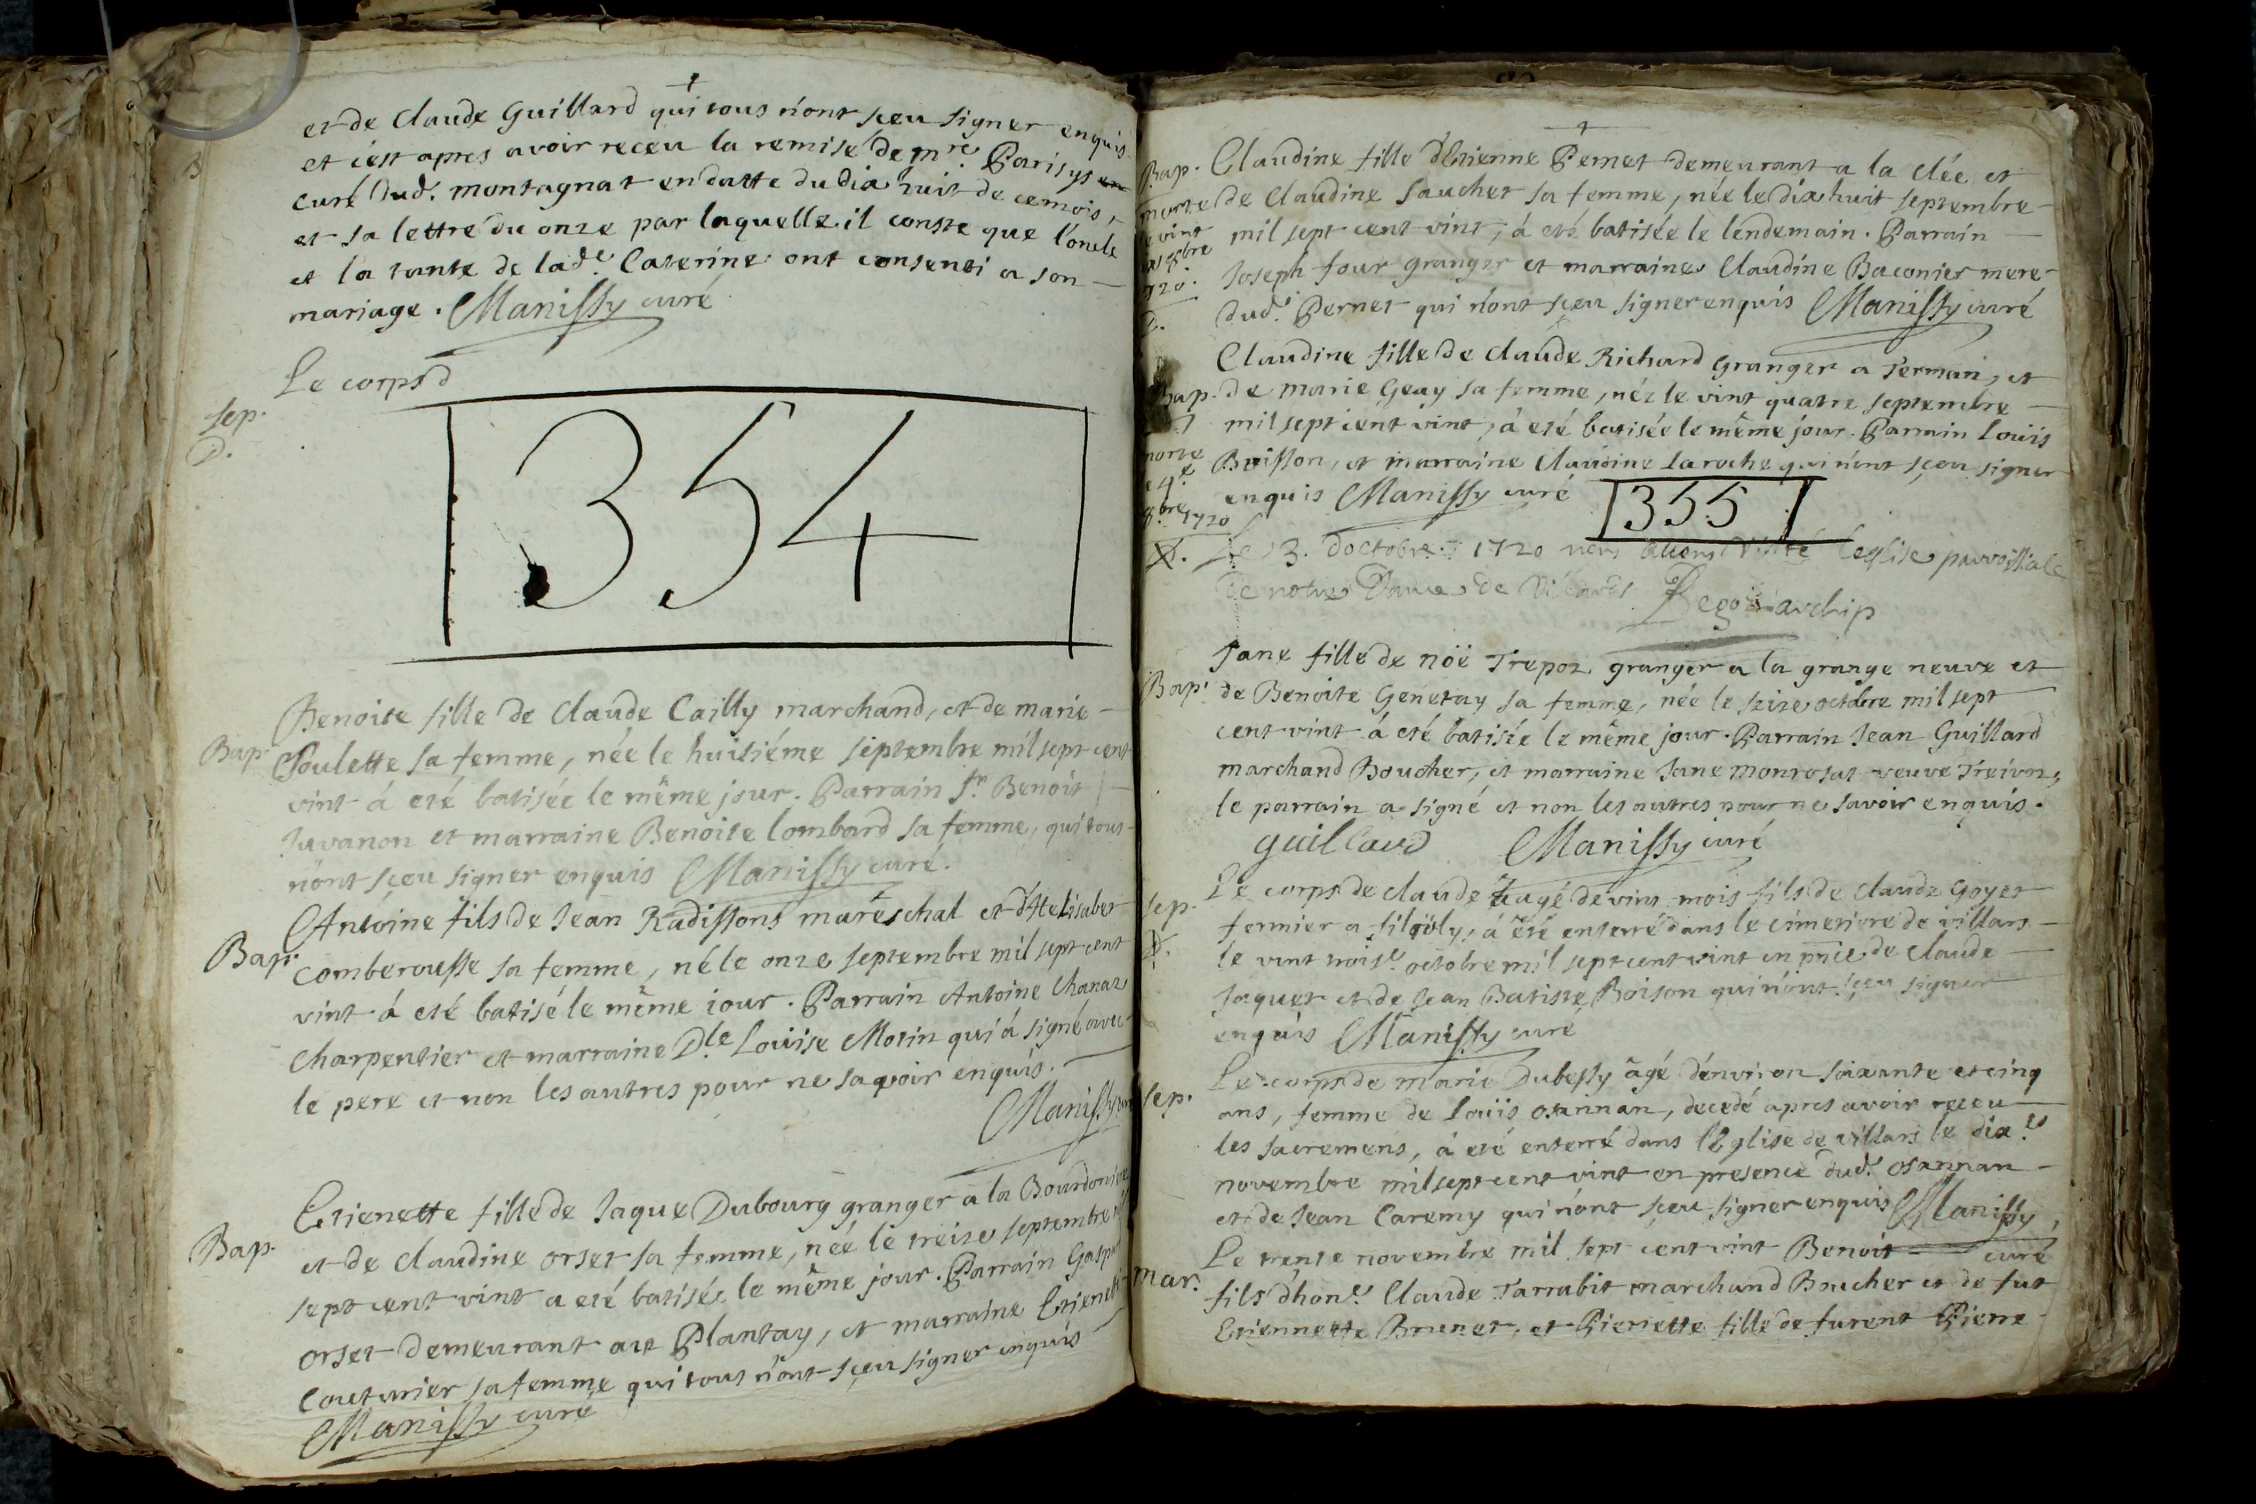 et de Claude Guillard qui tous n'ont sçeu signer enquis
et c'est apres avoir receu la remise de mre. Parisys
curé dud. montagnat en datte du dix huit de ce mois,
et sa lettre du onze par laquelle il conste que l'oncle
et la tante de lade. Caterine ont consenti a son
mariage. Manissy curé
Sep.
D.
Le corps d
354
Bap.
Benoite fille de Claude Cailly marchand, et de marie
Poulette sa femme, née le huitiéme septembre mil sept cent
vint á eté batisée le même jour. Parrain sr. Benoit
Juvanon et marraine Benoite lombard sa femme, qui tous
n'ont sçeu signer enquis Manissy curé.
Bap.
Antoine fils de Jean Radissons mareschal et d'Helisabet
Comberousse sa femme, né le onze septembre mil sept cent
vint á eté batisé le même jour. Parrain Antoine Chanaz
Charpentier et marraine Dle. Louise Morin qui á signé avec
le pere et non les autres pour ne savoir enquis.
Manissy
Bap.
Etienette fille de Jaque Dubourg granger a la Bourdoniere
et de Claudine orset sa femme, née le treize septembre mil
sept cent vint a eté batisée le même jour. Parrain Gaspar
orset demeurant au Plantay, et marraine Etienette
Couturier sa femme qui tous n'ont sçeu signer enquis
Manissy curé
Bap.
morte
le vint
1720.
D.
Claudine fille d'Etienne Pernet demeurant a la Clée et
de Claudine Sauchet sa femme, née le dix huit septembre
mil sept cent vint, á eté batisée le lendemain. Parrain
Joseph four granger et marraine Claudine Baconier mere
dud. Pernet qui n'ont sçeu signer enquis Manissy curé
Bap.
morte
le 4e.
8bre 1720
D.
Claudine fille de Claude Richard Granger a Terman, et
de marie Geay sa femme, née le vint quatre septembre
mil sept cent vint, á eté batisée le même jour. Parrain Louis
Buisson, et marraine Claudine Laroche qui n'ont sçeu signer
enquis Manissy curé
355
Le 3. d'octobre 1720 nous avons visité l'eglise parroissiale
de notre Dame de Villards archip
Bap.
Jane fille de noë Trepoz granger a la grange neuve et
de Benoite Genetay sa femme, née le seize octobre mil sept
cent vint á eté batisée le même jour. Parrain Jean Guillard
marchand Boucher, et marraine Jane monrosat veuve Treivoz,
le parrain a signé et non les autres pour ne savoir enquis.
guillard Manissy curé
Sep.
D.
Le corps de Claude agé de vint mois fils de Claude Goyet
fermier a filioly, á eté enterré dans le cimetiere de villars
le vint troise. octobre mil sept cent vint en pnce de Claude
Jaquet et de Jean Batiste Boison qui n'ont sçeu signer
enquis Manissy curé
Sep.
Le corps de marie Dubessy âgé d'environ soixante et cinq
ans, femme de Louis osannan, decedé apres avoir receu
les sacremens, á eté enterré dans l'Eglise de villars le dix
novembre mil sept cent vint en presence dud. osannan
et de Jean Caremy qui n'ont sçeu signer enquis Manissy
curé
mar.
Le trente novembre mil sept cent vint Benoit
fils d'hone. Claude Tarrabit marchand Boucher et de fut
Etiennette Brunet, et Pierrette fille de furent Pierre